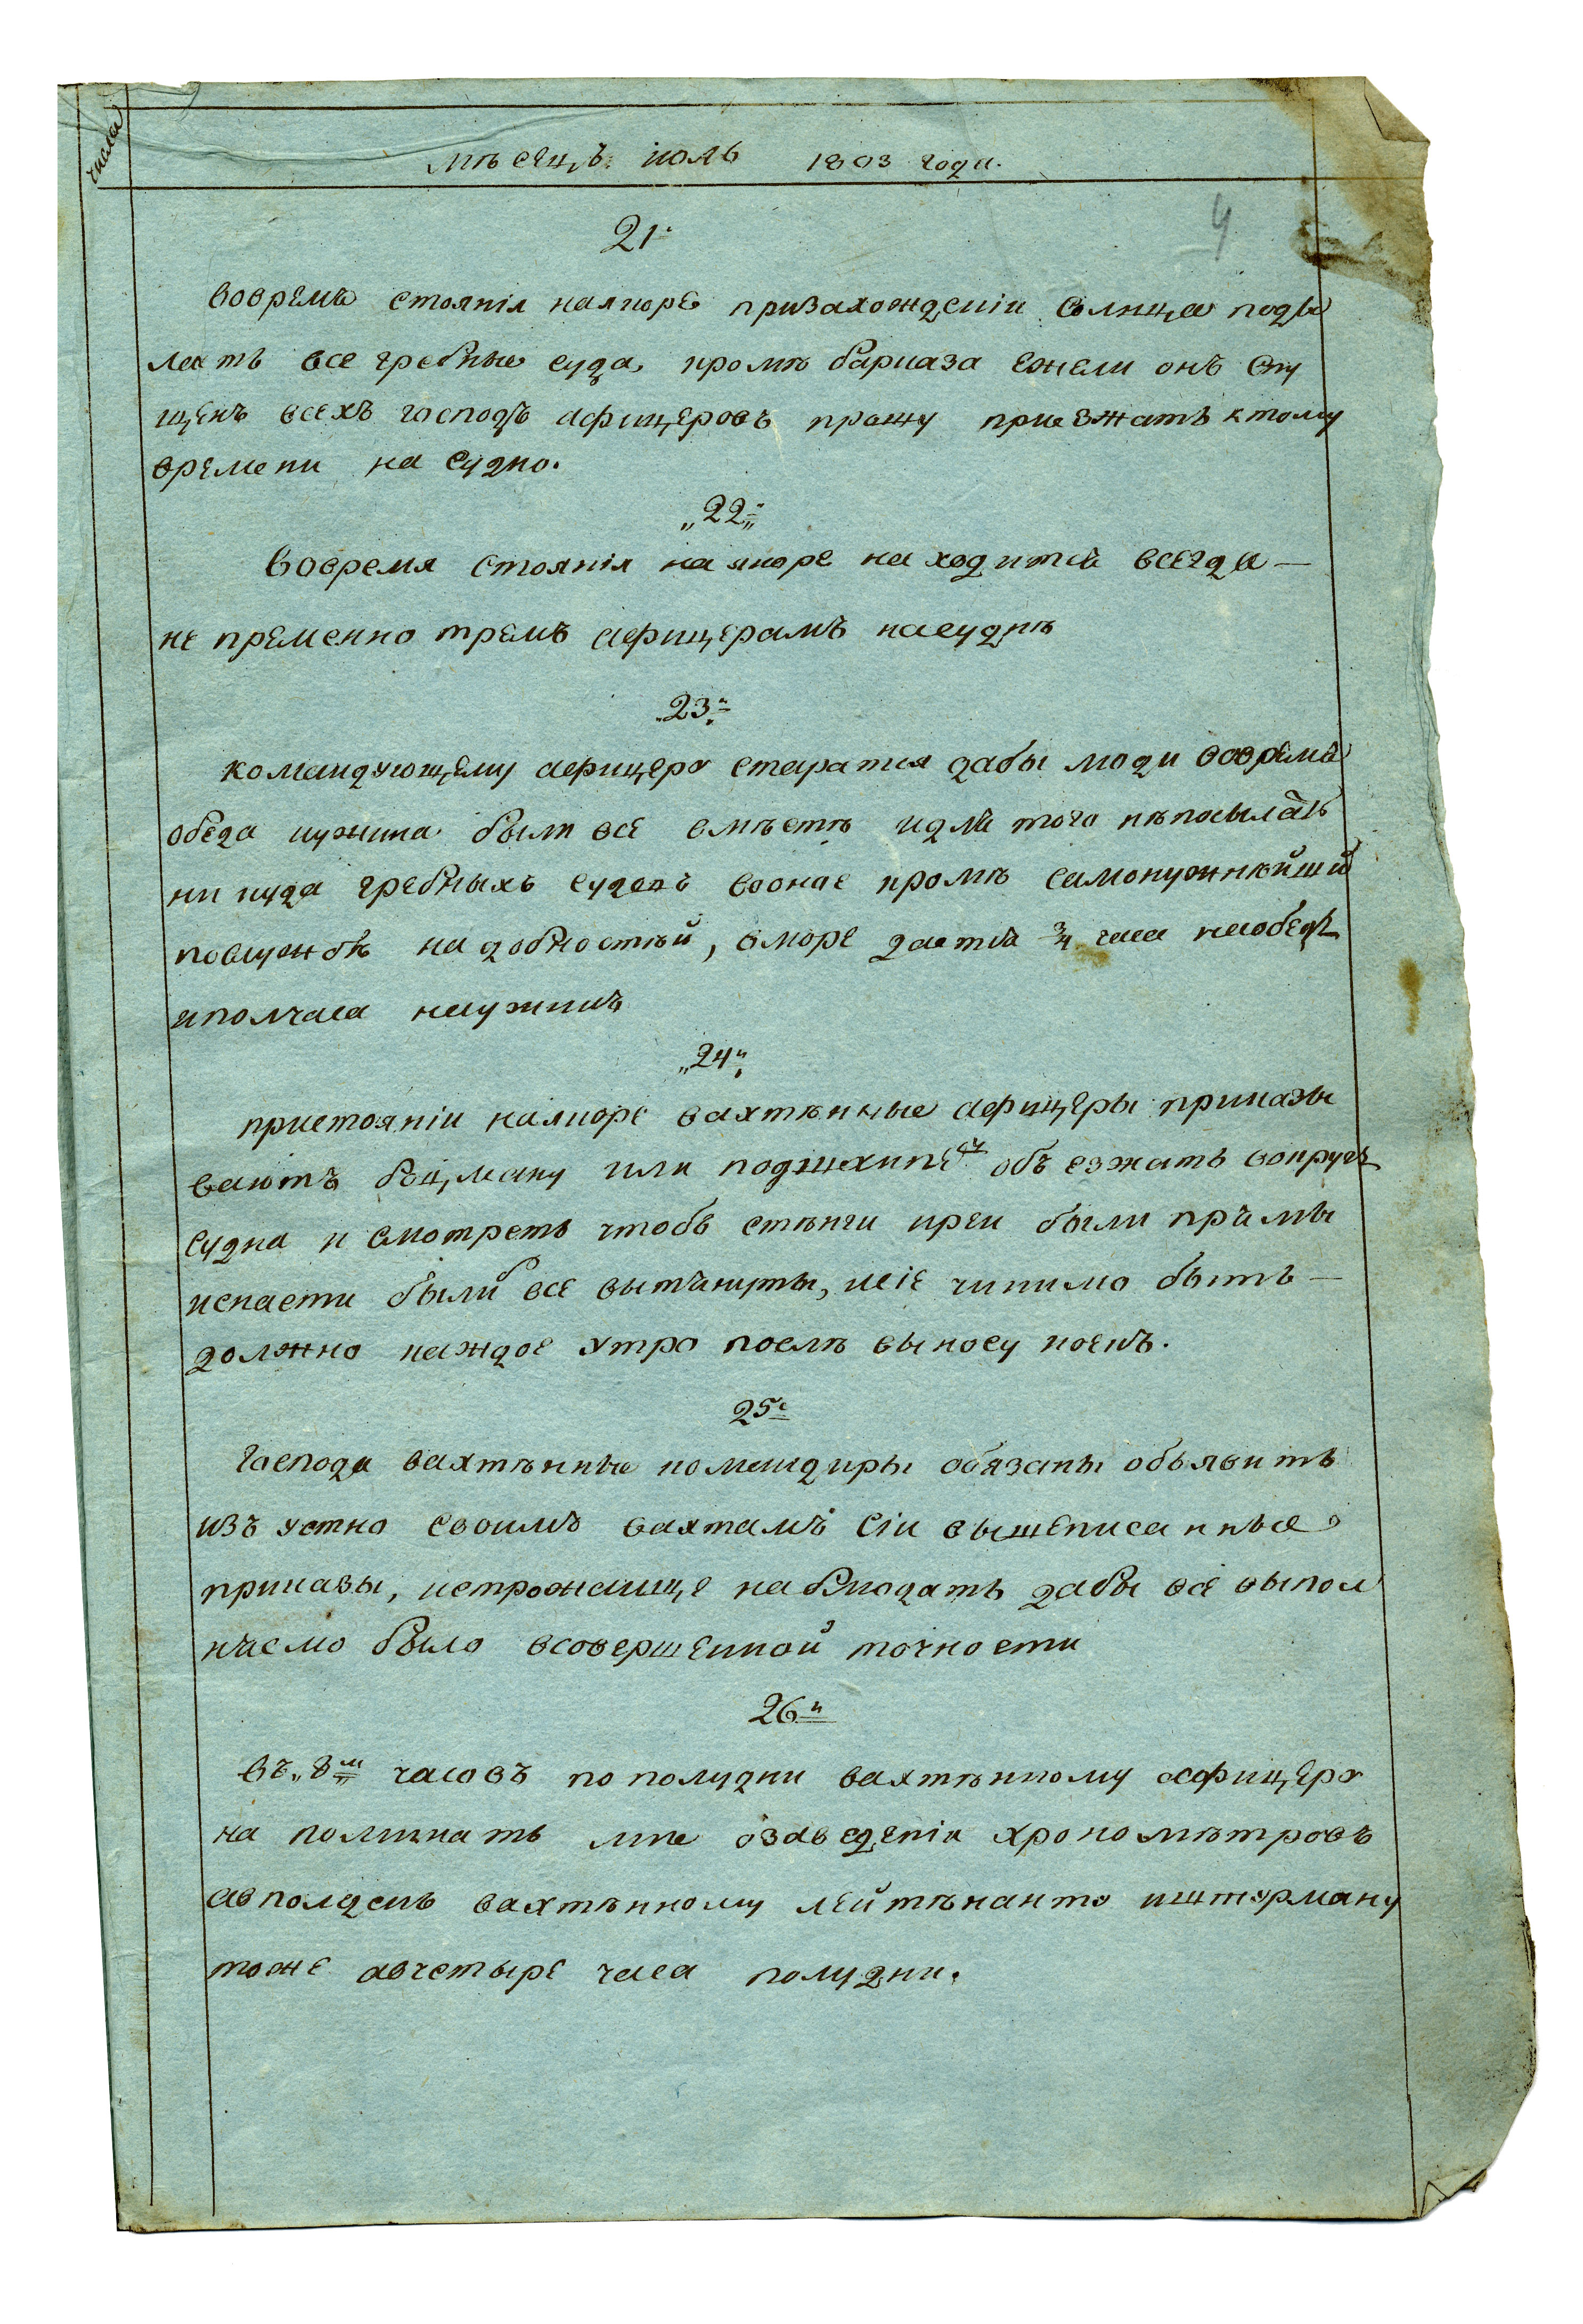 числа
мѣсяцъ июль 1803 года.
4
21.
вовремя стоянія наякорѣ призахожденіи солнца поды
мать все гребные суда, кромѣ барказа ежели онъ спу
щенъ всехъ господъ афицеровъ прошу приезжать ктому
времени на судно.
„22„
вовремя стоянія на якоре на ходится всегда —
не пременно тремъ афицерамъ насуднѣ
„23„
командующему афицеру старатся дабы люди вовремя
обеда иужина были все вместѣ идля того нѣпосылать
ни куда гребныхъ суденъ воонае кромѣ самонужнѣйший
послужбѣ на добностѣй, вморе дается ¾ часа наобедъ
иполчаса наужинъ
„24„
пристояніи наякоре вахтѣнные афицеры приказы
ваютъ боцману или подшхипе объ езжать вокругъ
судна и смотреть чтобъ стѣнги иреи были прямы
иснасти были все вытянуты, исіе чинимо быть —
должно каждое утро послѣ выносу коекъ.
25
господа вахтѣнные командиры обязаны объявить
изъ устно своимъ вахтамъ сіи вышеписанные
приказы, истрожаище наблюдать дабы все выпол
няемо было всовершенной точности
26
въ „8„ часовъ по полудни вахтѣнному афицеру
на поминать мне озаведеніи хрономѣтровъ
авполдень вахтѣнному лейтѣнанту иштурману
тоже авчетыре часа полудни.